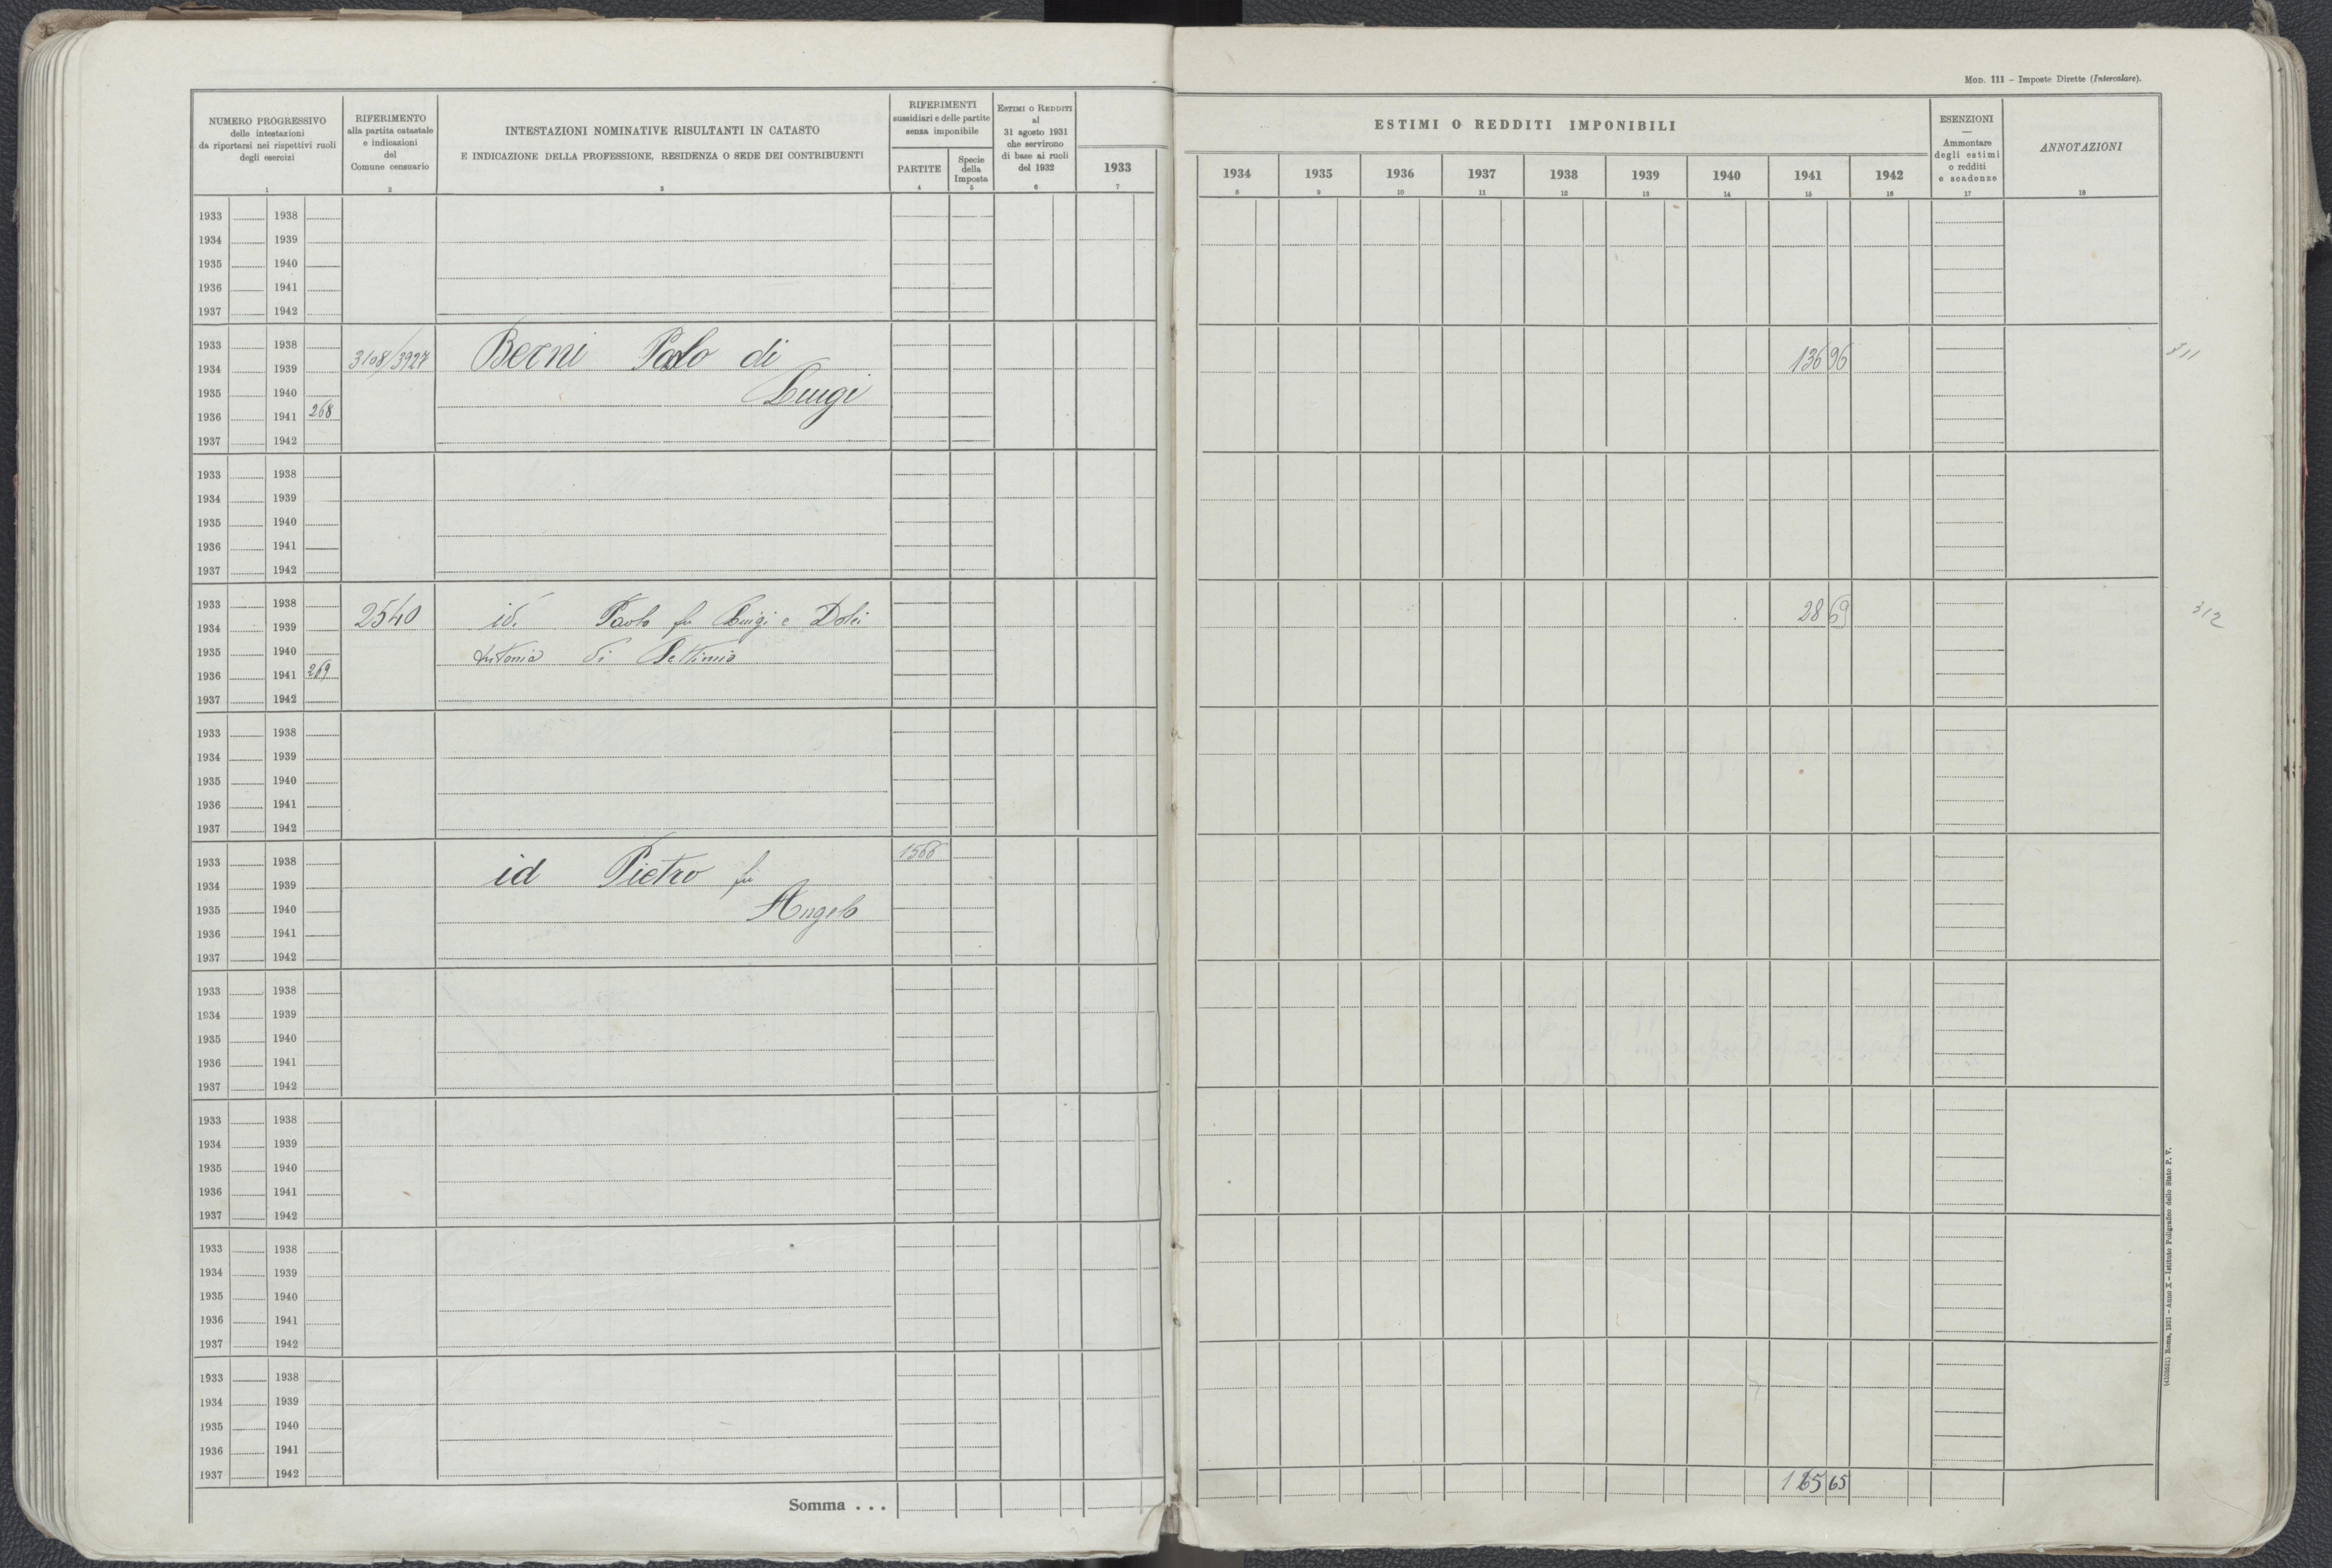 MOD. 111 – Imposte Dirette (Intercalare).
NUMERO PROGRESSIVO
delle intestazioni
da riportarsi nei rispettivi ruoli
degli esercizi
1
RIFERIMENTO
alla partita catastale
e indicazioni
del
Comune censuario
2
INTESTAZIONI NOMINATIVE RISULTANTI IN CATASTO
E INDICAZIONE DELLA PROFESSIONE, RESIDENZA O SEDE DEI CONTRIBUENTI
3
RIFERIMENTI
sussidiari e delle partite
senza imponibile
PARTITE
4
Specie
della
Imposta
5
ESTIMI O REDDITI
al
31 agosto 1931
che servirono
di base ai ruoli
del 1932
6
1933
7
ESTIMI O REDDITI IMPONIBILI
1934 1935 1936 1937 1938 1939 1940 1941 1942
8 9 10 11 12 13 14 15 16
ESENZIONI
Ammontare
degli estimi
o redditi
e scadenze
17
ANNOTAZIONI
18
1933 1938
1934 1939
1935 1940
1936 1941
1937 1942
1933 1938
3108/3927 Berni Paolo di 136 96 311
1934 1939
Luigi
1935 1940
1936 1941 268
1937 1942
1933 1938
1934 1939
1935 1940
1936 1941
1937 1942
1933 1938
2540 id. Paolo fu Luigi e Dolci 28 69 312
1934 1939
Antonia di Settimio
1935 1940
1936 1941 269
1937 1942
1933 1938
1934 1939
1935 1940
1936 1941
1937 1942
1933 1938 1566
id Pietro fu
1934 1939
Angelo
1935 1940
1936 1941
1937 1942
1933 1938
1934 1939
1935 1940
1936 1941
1937 1942
1933 1938
1934 1939
1935 1940
1936 1941
1937 1942
1933 1938
1934 1939
1935 1940
1936 1941
1937 1942
1933 1938
1934 1939
1935 1940
1936 1941
1937 1942
Somma . . . 165 65
Roma, 1931 – Anno X – Istituto Poligrafico dello Stato P. V.